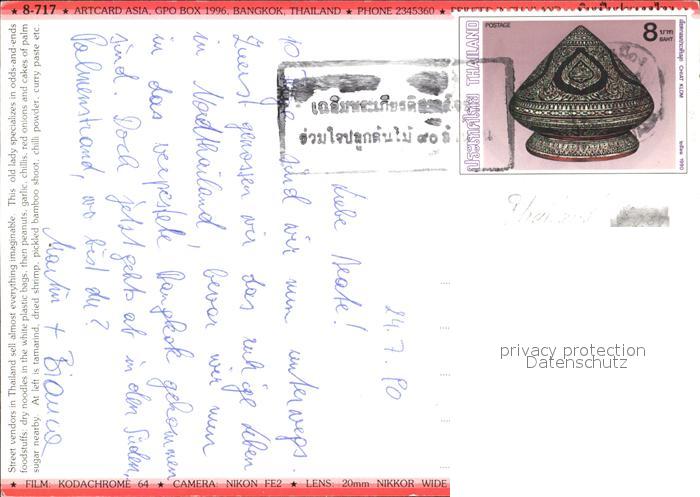 ★ 8-717 ★ ARTCARD ASIA, GPO BOX 1996, BANGKOK, THAILAND ★ PHONE 2345360 ★
Street vendors in Thailand sell almost everything imaginable. This old lady specializes in odds-and-ends
foodstuffs: dry noodles in the white plastic bags, then peanuts, garlic, chillis, red onions and cakes of palm
sugar nearby. At left is tamarind, dried shrimp, pickled bamboo shoot, chilli powder, curry paste etc.
24.7.90
Liebe Beate!
10 Tage sind wir nun unterwegs.
Zuerst genossen wir das ruhige Leben
in Nordthailand bevor wir nun
in das verpestete Bangkok gekommen
sind. Doch jetzt gehts ab in den Süden,
Palmenstrand, wo bist du?
Martin + Bianca
POSTAGE
8 บาท
BAHT
ประเทศไทย THAILAND
CHIAT KLOM
๒๕๓๓ 1990
ร่วมใจปลูกต้นไม้ ๙๐ ล้
Thailand
privacy protection
Datenschutz
★ FILM: KODACHROME 64 ★ CAMERA: NIKON FE2 ★ LENS: 20mm NIKKOR WIDE